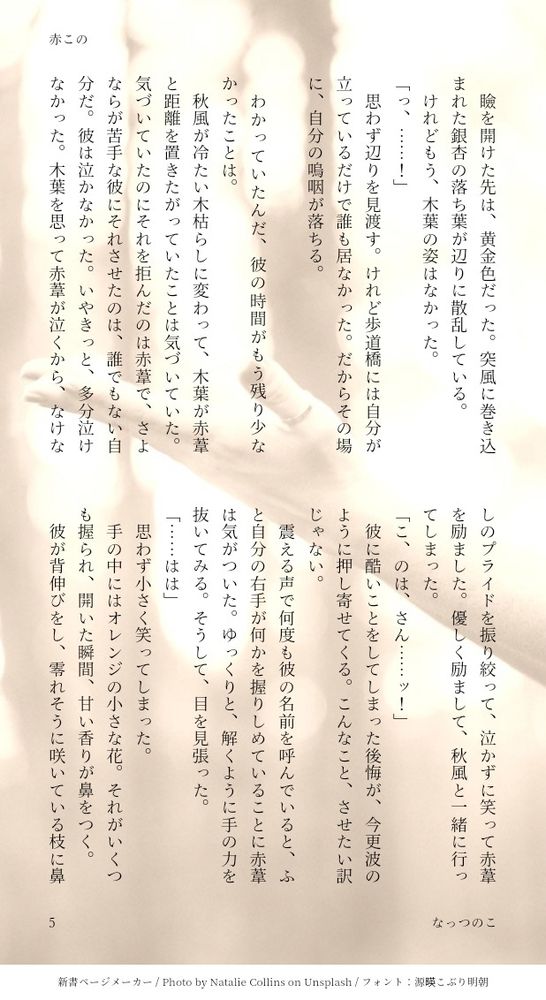 赤この
　瞼を開けた先は、黄金色だった。突風に巻き込
まれた銀杏の落ち葉が辺りに散乱している。
　けれどもう、木葉の姿はなかった。
「っ、……！」
　思わず辺りを見渡す。けれど歩道橋には自分が
立っているだけで誰も居なかった。だからその場
に、自分の嗚咽が落ちる。
　わかっていたんだ、彼の時間がもう残り少な
かったことは。
　秋風が冷たい木枯らしに変わって、木葉が赤葦
と距離を置きたがっていたことは気づいていた。
気づいていたのにそれを拒んだのは赤葦で、さよ
ならが苦手な彼にそれさせたのは、誰でもない自
分だ。彼は泣かなかった。いやきっと、多分泣け
なかった。木葉を思って赤葦が泣くから、なけな
しのプライドを振り絞って、泣かずに笑って赤葦
を励ました。優しく励まして、秋風と一緒に行っ
てしまった。
「こ、のは、さん……ッ！」
　彼に酷いことをしてしまった後悔が、今更波の
ように押し寄せてくる。こんなこと、させたい訳
じゃない。
　震える声で何度も彼の名前を呼んでいると、ふ
と自分の右手が何かを握りしめていることに赤葦
は気がついた。ゆっくりと、解くように手の力を
抜いてみる。そうして、目を見張った。
「……はは」
　思わず小さく笑ってしまった。
　手の中にはオレンジの小さな花。それがいくつ
も握られ、開いた瞬間、甘い香りが鼻をつく。
　彼が背伸びをし、零れそうに咲いている枝に鼻
5
なっつのこ
新書ページメーカー / Photo by Natalie Collins on Unsplash / フォント：源暎こぶり明朝